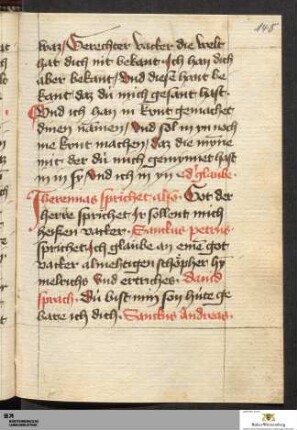 145
waz / Gerechter vatter die welt
hat dich nit bekant · Ich han dich
aber bekant / Vnd disen hant be
kant daz du mich gesant hast ·
Vnd ich han in kunt gemachet
dinen namen / Vnd sol in yn noch
me kunt machen / daz die mynne
mit der du mich gemynnet hast
in in sy / Vnd ich in yn · d' glaube ·
Jheremias sprichet also · Got der
herre sprichet Ir sollent mich
heissen vatter · Sanctus petrus
sprichet · Ich glaube an eine got
vatter almehtigen schöpher hy
melrichs vnd ertriches · dauid
sprach · Du bist min son hüte ge
bare ich dich · Sanctus Andreas ·
WLB
WÜRTTEMBERGISCHE
LANDESBIBLIOTHEK
Baden-Württemberg